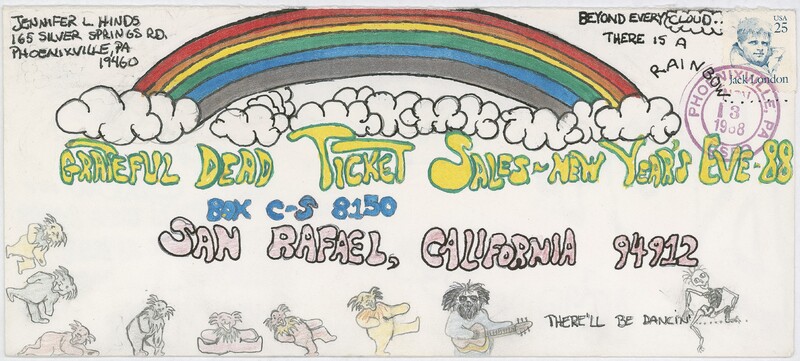 JENNIFER L. HINDS
165 SILVER SPRINGS RD.
PHOENIXVILLE, PA
19460
BEYOND EVERY CLOUD..
THERE IS A
RAINBOW.......
USA
25
Jack London
PHOENIXVILLE, PA
NOV
13
1988
USPO
GRATEFUL DEAD TICKET SALES~NEW YEAR'S EVE-88
BOX C-S 8150
SAN RAFAEL, CALIFORNIA 94912
THERE'LL BE DANCIN'........